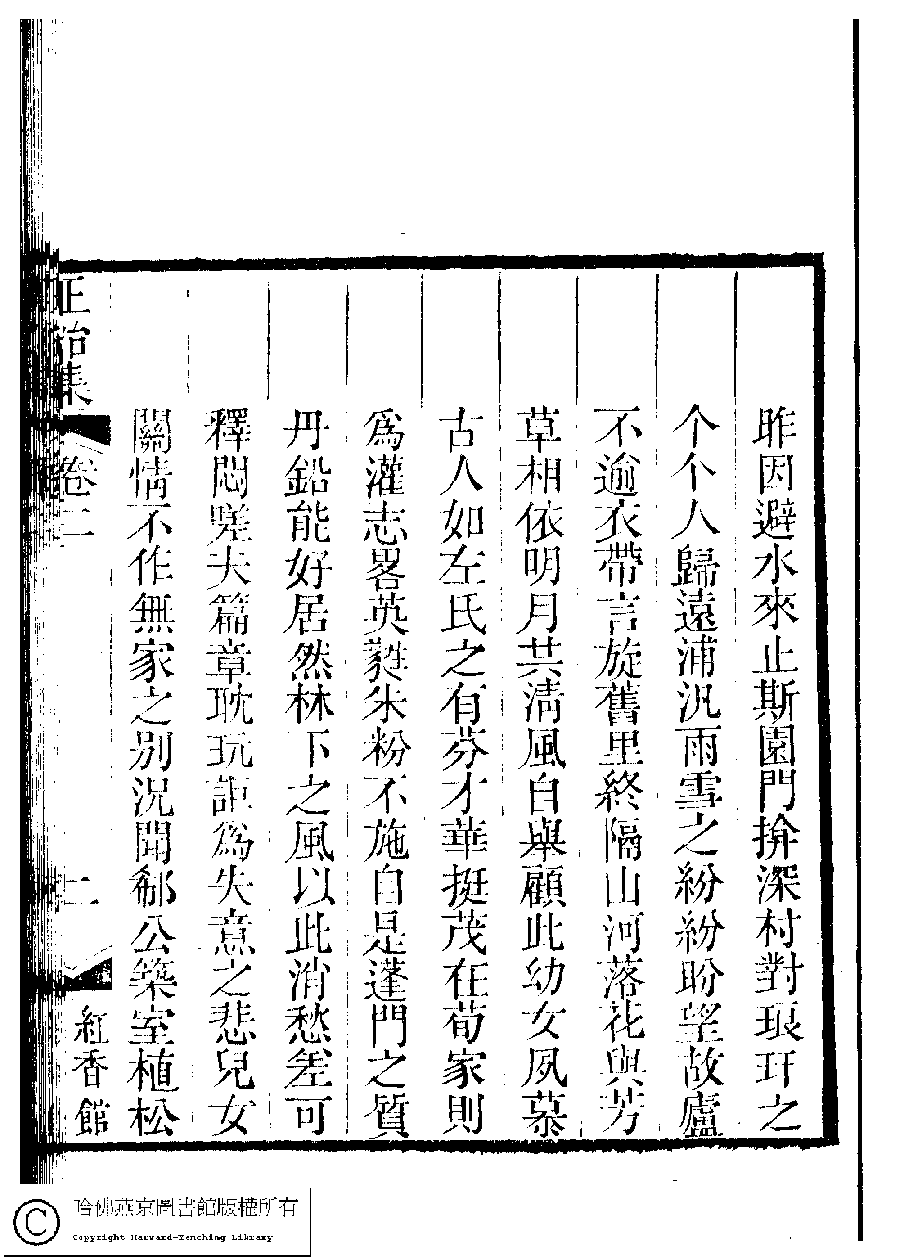 昨因避水來止斯園門揜深村對琅玕之
个个人歸遠浦汎雨雪之紛紛盼望故廬
不逾衣帶言旋舊里終隔山河落花與芳
草相依明月共清風自舉顧此幼女夙慕
古人如左氏之有芬才華挺茂在荀家則
爲灌志畧英毅朱粉不施自是蓬門之質
丹鉛能好居然林下之風以此消愁差可
釋悶嗟夫篇章耽玩詎爲失意之悲兒女
關情不作無家之別況聞郗公築室植松
正始集 卷二 二 紅香館
哈佛燕京圖書館版權所有
Copyright Harvard-Yenching Library